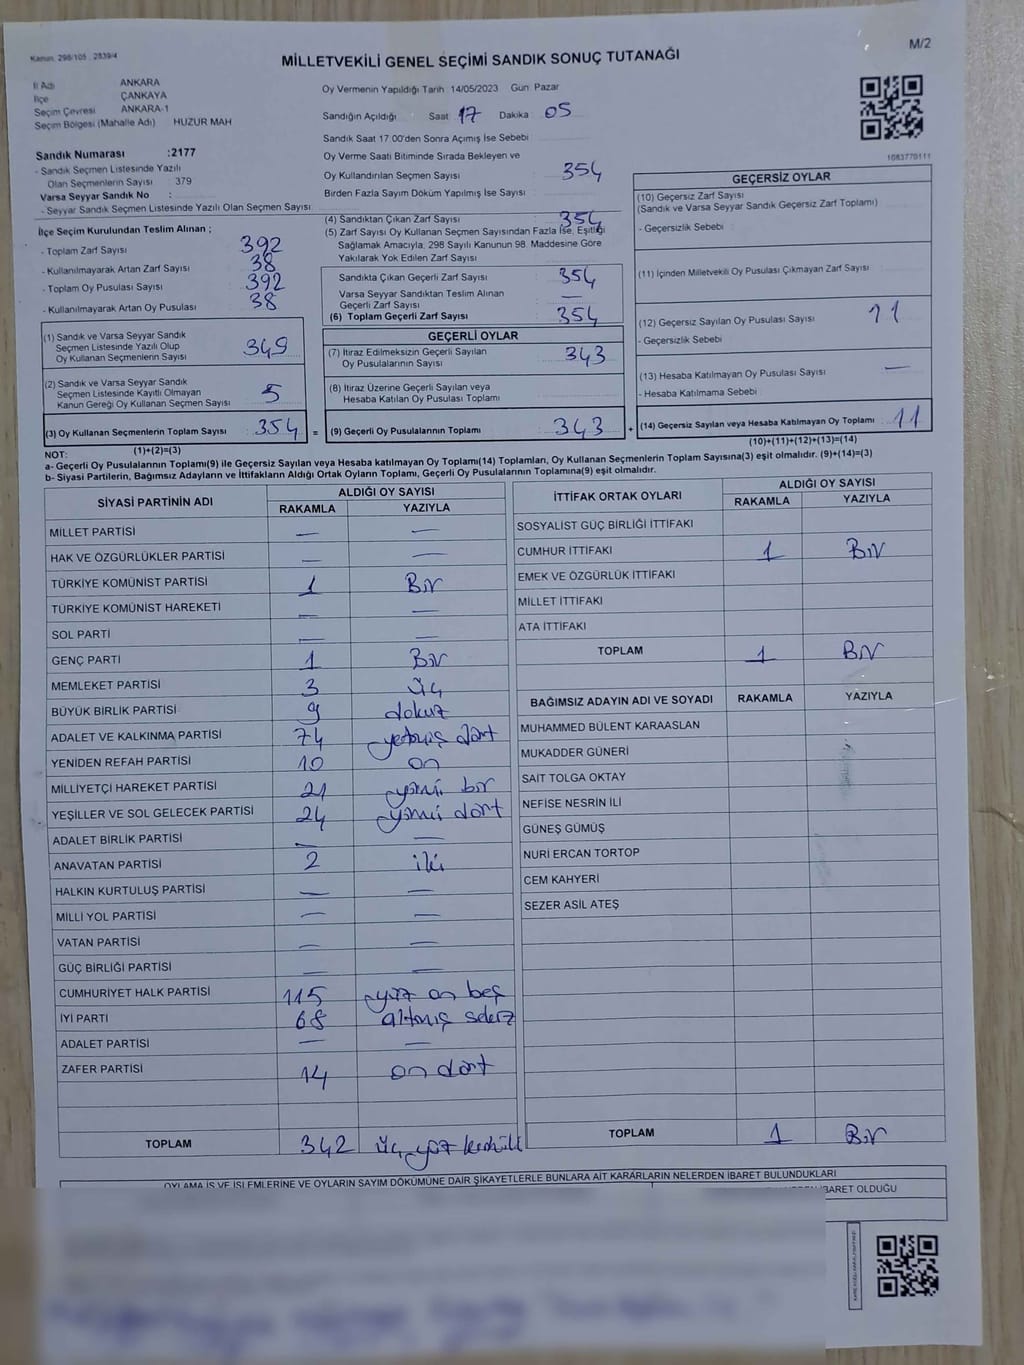 Kanun: 298/105 , 2839/4
M/2
MİLLETVEKİLİ GENEL SEÇİMİ SANDIK SONUÇ TUTANAĞI
İl Adı ANKARA
İlçe ÇANKAYA
Seçim Çevresi ANKARA-1
Seçim Bölgesi (Mahalle Adı) HUZUR MAH
Sandık Numarası :2177
- Sandık Seçmen Listesinde Yazılı
Olan Seçmenlerin Sayısı 379
Varsa Seyyar Sandık No :
- Seyyar Sandık Seçmen Listesinde Yazılı Olan Seçmen Sayısı:
Oy Vermenin Yapıldığı Tarih 14/05/2023 Gün: Pazar
Sandığın Açıldığı Saat 17 Dakika 05
Sandık Saat 17:00'den Sonra Açımış İse Sebebi
Oy Verme Saati Bitiminde Sırada Bekleyen ve
Oy Kullandırılan Seçmen Sayısı 354
Birden Fazla Sayım Döküm Yapılmış İse Sayısı
1083770111
İlçe Seçim Kurulundan Teslim Alınan ;
- Toplam Zarf Sayısı 392
- Kullanılmayarak Artan Zarf Sayısı 38
- Toplam Oy Pusulası Sayısı 392
- Kullanılmayarak Artan Oy Pusulası 38
(1) Sandık ve Varsa Seyyar Sandık
Seçmen Listesinde Yazılı Olup
Oy Kullanan Seçmenlerin Sayısı 349
(2) Sandık ve Varsa Seyyar Sandık
Seçmen Listesinde Kayıtlı Olmayan
Kanun Gereği Oy Kullanan Seçmen Sayısı 5
(3) Oy Kullanan Seçmenlerin Toplam Sayısı 354 =
(1)+(2)=(3)
(4) Sandıktan Çıkan Zarf Sayısı 354
(5) Zarf Sayısı Oy Kullanan Seçmen Sayısından Fazla İse, Eşitliği
Sağlamak Amacıyla, 298 Sayılı Kanunun 98. Maddesine Göre
Yakılarak Yok Edilen Zarf Sayısı
Sandıkta Çıkan Geçerli Zarf Sayısı 354
Varsa Seyyar Sandıktan Teslim Alınan
Geçerli Zarf Sayısı —
(6) Toplam Geçerli Zarf Sayısı 354
GEÇERLİ OYLAR
(7) İtiraz Edilmeksizin Geçerli Sayılan
Oy Pusulalarının Sayısı 343
(8) İtiraz Üzerine Geçerli Sayılan veya
Hesaba Katılan Oy Pusulası Toplamı
(9) Geçerli Oy Pusulalarının Toplamı 343 +
GEÇERSİZ OYLAR
(10) Geçersiz Zarf Sayısı
(Sandık ve Varsa Seyyar Sandık Geçersiz Zarf Toplamı)
- Geçersizlik Sebebi
(11) İçinden Milletvekili Oy Pusulası Çıkmayan Zarf Sayısı
(12) Geçersiz Sayılan Oy Pusulası Sayısı 11
- Geçersizlik Sebebi
(13) Hesaba Katılmayan Oy Pusulası Sayısı —
- Hesaba Katılmama Sebebi
(14) Geçersiz Sayılan veya Hesaba Katılmayan Oy Toplamı 11
(10)+(11)+(12)+(13)=(14)
NOT:
a- Geçerli Oy Pusulalarının Toplamı(9) ile Geçersiz Sayılan veya Hesaba katılmayan Oy Toplamı(14) Toplamları, Oy Kullanan Seçmenlerin Toplam Sayısına(3) eşit olmalıdır. (9)+(14)=(3)
b- Siyasi Partilerin, Bağımsız Adayların ve İttifakların Aldığı Ortak Oyların Toplamı, Geçerli Oy Pusulalarının Toplamına(9) eşit olmalıdır.
SİYASİ PARTİNİN ADI ALDIĞI OY SAYISI
RAKAMLA YAZIYLA
MİLLET PARTİSİ — —
HAK VE ÖZGÜRLÜKLER PARTİSİ — —
TÜRKİYE KOMÜNİST PARTİSİ 1 Bir
TÜRKİYE KOMÜNİST HAREKETİ — —
SOL PARTİ — —
GENÇ PARTİ 1 Bir
MEMLEKET PARTİSİ 3 üç
BÜYÜK BİRLİK PARTİSİ 9 dokuz
ADALET VE KALKINMA PARTİSİ 74 yetmiş dört
YENİDEN REFAH PARTİSİ 10 on
MİLLİYETÇİ HAREKET PARTİSİ 21 yirmi bir
YEŞİLLER VE SOL GELECEK PARTİSİ 24 yirmi dört
ADALET BİRLİK PARTİSİ — —
ANAVATAN PARTİSİ 2 iki
HALKIN KURTULUŞ PARTİSİ — —
MİLLİ YOL PARTİSİ — —
VATAN PARTİSİ — —
GÜÇ BİRLİĞİ PARTİSİ — —
CUMHURİYET HALK PARTİSİ 115 yüz on beş
İYİ PARTİ 68 altmış sekiz
ADALET PARTİSİ — —
ZAFER PARTİSİ 14 on dört
TOPLAM 342 üç yüz kırkiki
İTTİFAK ORTAK OYLARI ALDIĞI OY SAYISI
RAKAMLA YAZIYLA
SOSYALİST GÜÇ BİRLİĞİ İTTİFAKI
CUMHUR İTTİFAKI 1 Bir
EMEK VE ÖZGÜRLÜK İTTİFAKI
MİLLET İTTİFAKI
ATA İTTİFAKI
TOPLAM 1 Bir
BAĞIMSIZ ADAYIN ADI VE SOYADI RAKAMLA YAZIYLA
MUHAMMED BÜLENT KARAASLAN
MUKADDER GÜNERİ
SAİT TOLGA OKTAY
NEFİSE NESRİN İLİ
GÜNEŞ GÜMÜŞ
NURİ ERCAN TORTOP
CEM KAHYERİ
SEZER ASİL ATEŞ
TOPLAM 1 Bir
OYLAMA İŞ VE İŞLEMLERİNE VE OYLARIN SAYIM DÖKÜMÜNE DAİR ŞİKAYETLERLE BUNLARA AİT KARARLARIN NELERDEN İBARET BULUNDUKLARI
İBARET OLDUĞU